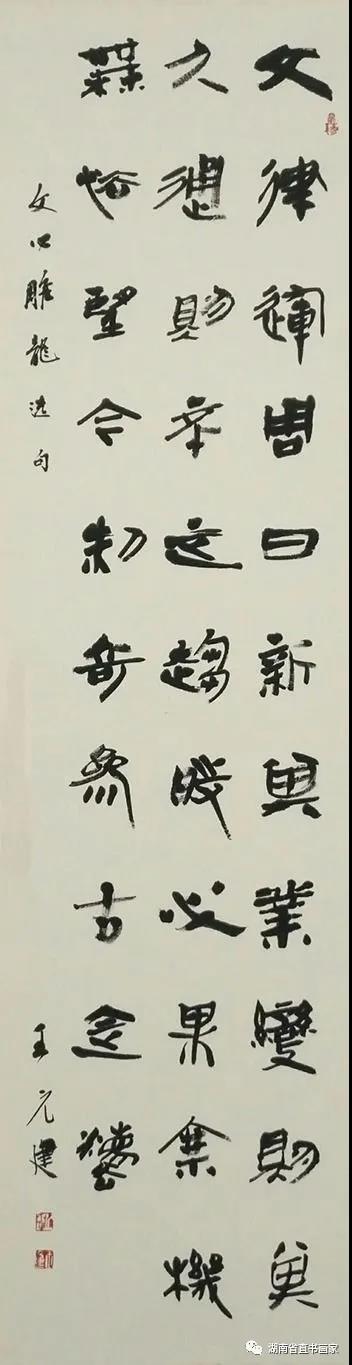 文律運周日新其業變則其
久通則不乏趨時必果乘機
無怯望今制奇參古定灋
文心雕龍选句
王元建
湖南省直书画家